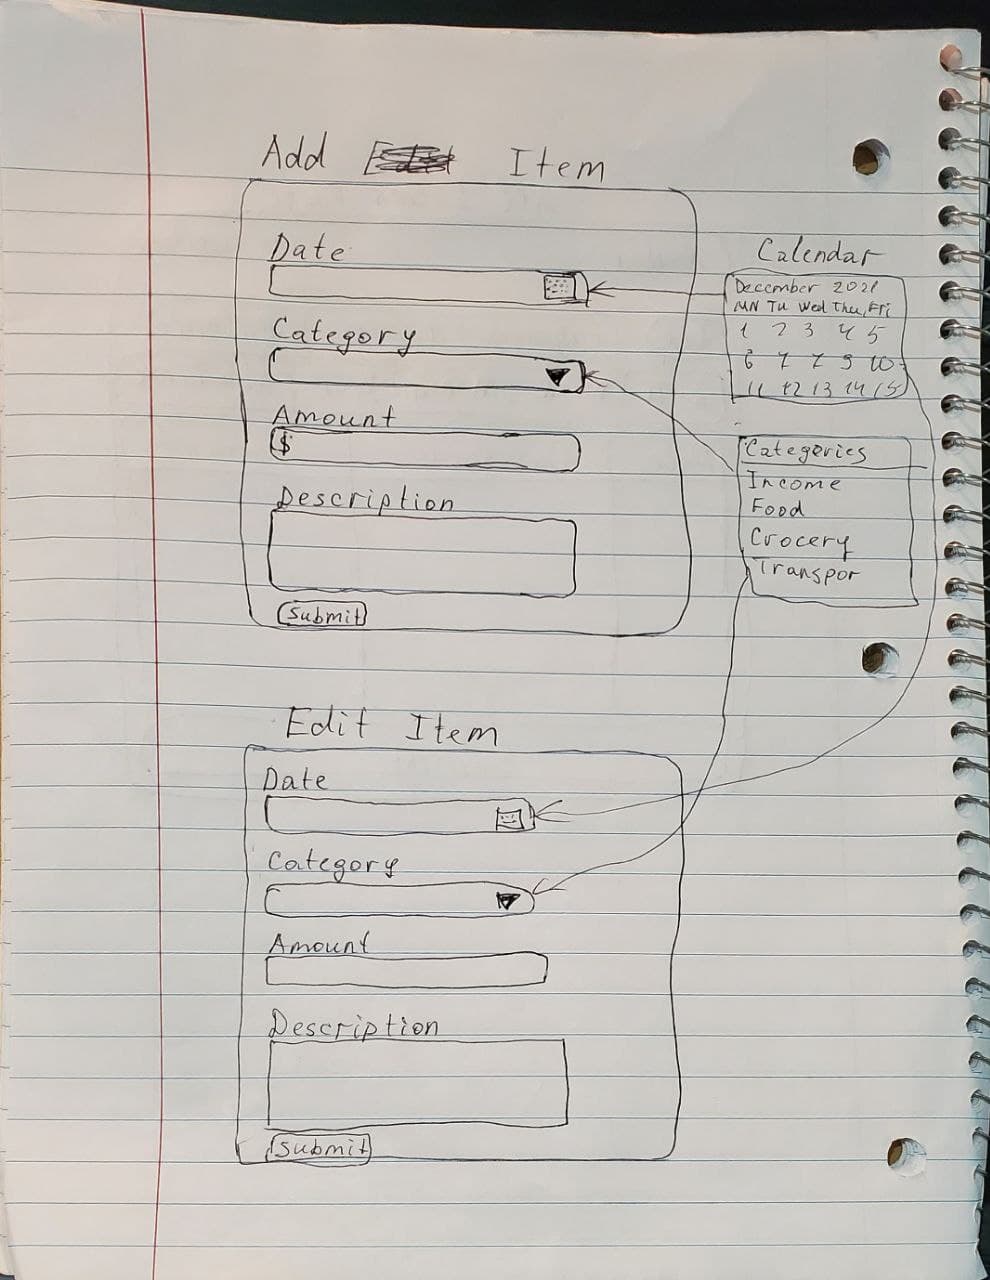 Add Item
Date
Category
Amount
$
Description
Submit
Calendar
December 2021
MN Tu Wed Thu, Fri
1 2 3 4 5
6 7 7 9 10
11 12 13 14 15
Categories
Income
Food
Crocery
Transpor
Edit Item
Date
Category
Amount
Description
Submit